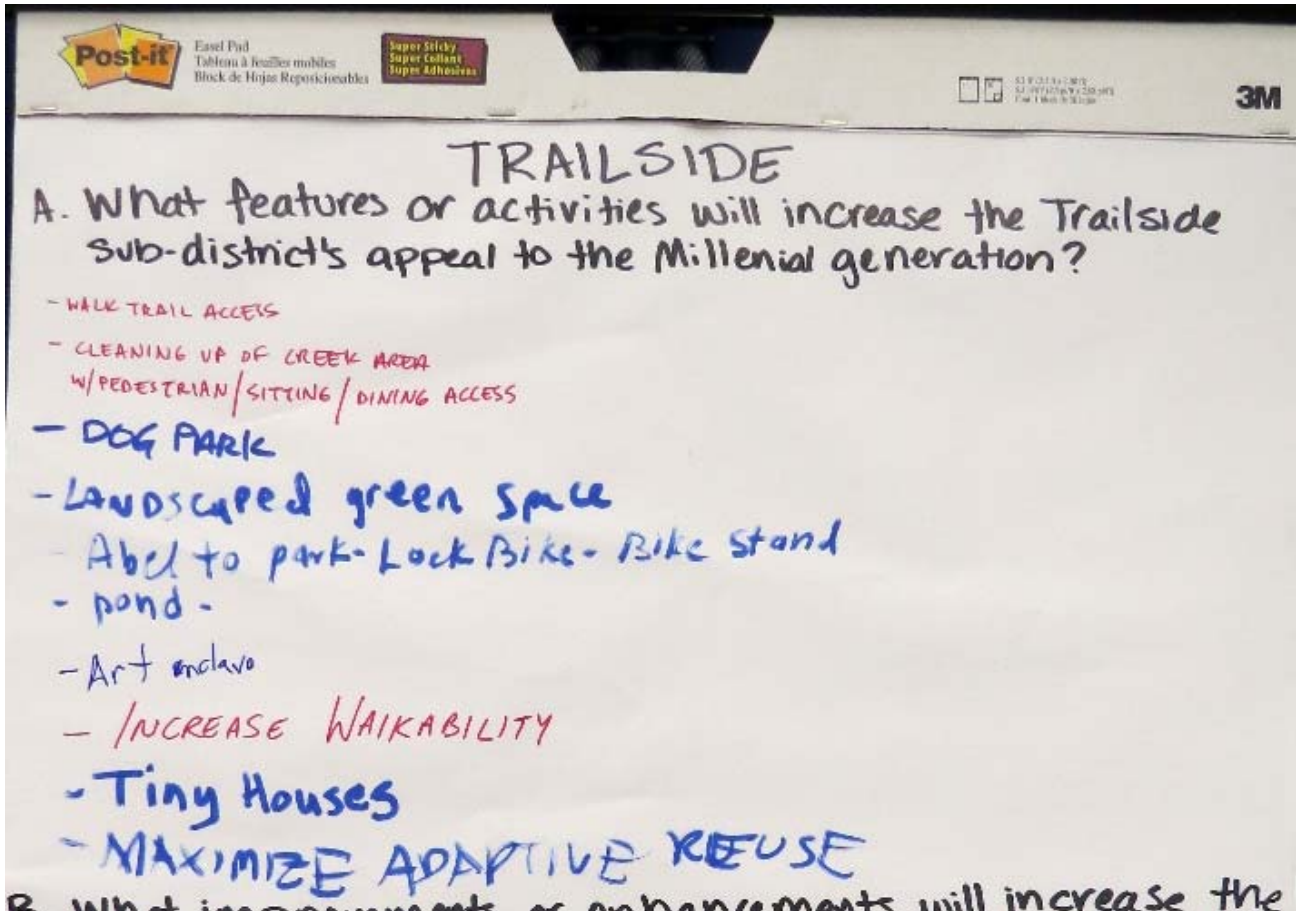 Post-it
Easel Pad
Tableau à feuilles mobiles
Block de Hojas Reposicionables
Super Sticky
Super Collant
Super Adhesivas
3M
TRAILSIDE
A. What features or activities will increase the Trailside
sub-district's appeal to the Millenial generation?
- WALK TRAIL ACCESS
- CLEANING UP OF CREEK AREA
W/PEDESTRIAN/SITTING/DINING ACCESS
- DOG PARK
- LANDSCAPED green space
- Abel to park - Lock Bike - Bike stand
- pond -
- Art enclave
- INCREASE WALKABILITY
- Tiny Houses
- MAXIMIZE ADAPTIVE REUSE
B. What improvements or enhancements will increase the